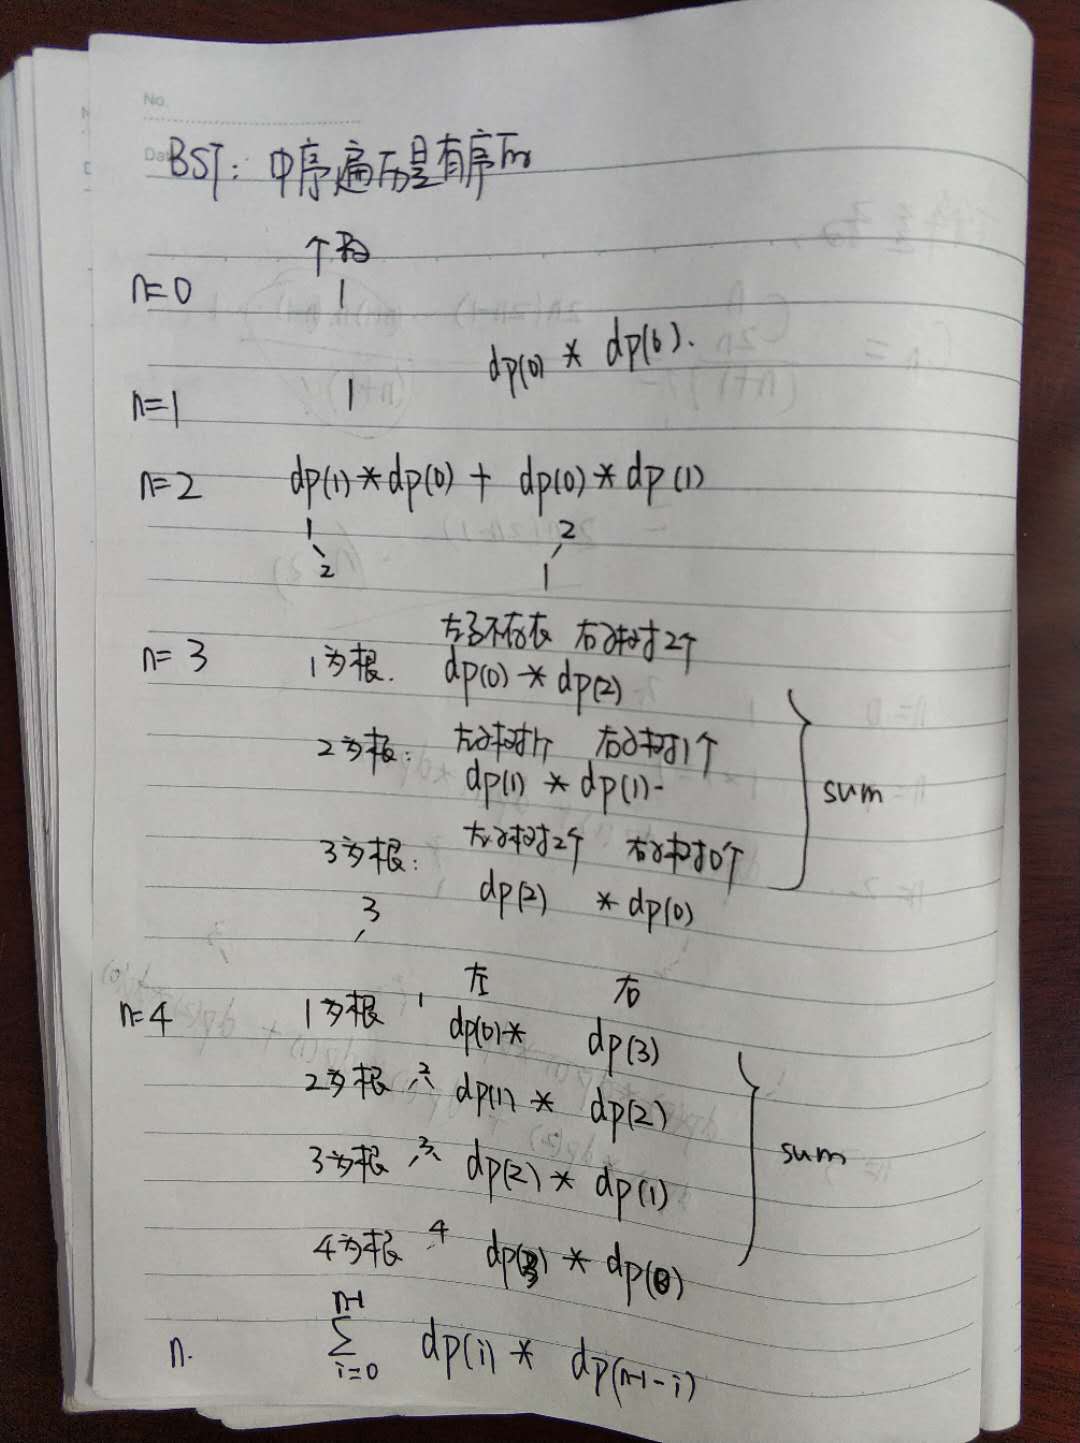 No.
Da
BST: 中序遍历是有序的
个数
n=0 1
dp(0) * dp(0).
n=1 1
n=2 dp(1)*dp(0) + dp(0)*dp(1)
1 2
2 1
左子不存在 右子树2个
n=3 1为根. dp(0)*dp(2)
2为根: 左子树1个 右子树1个
dp(1) * dp(1)
sum
3为根: 左子树2个 右子树0个
dp(2) * dp(0)
3
左 右
n=4 1为根 1 dp(0)* dp(3)
2为根 2 dp(1) * dp(2)
3为根 3 dp(2) * dp(1) sum
4为根 4 dp(3) * dp(0)
n. n-1 ∑ i=0 dp(i) * dp(n-1-i)